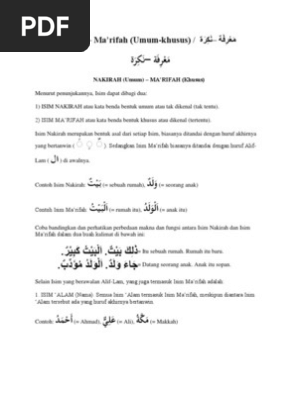 PDF
– Ma'rifah (Umum-khusus) / مَعْرِفَة – نَكِرَة
مَعْرِفَة – نَكِرَة
NAKIRAH (Umum) – MA'RIFAH (Khusus)
Menurut penunjukannya, Isim dapat dibagi dua:
1) ISIM NAKIRAH atau kata benda bentuk umum atau tak dikenal (tak tentu).
2) ISIM MA'RIFAH atau kata benda bentuk khusus atau dikenal (tertentu).
Isim Nakirah merupakan bentuk asal dari setiap Isim, biasanya ditandai dengan huruf akhirnya
yang bertanwin ( ً ٍ ٌ ). Sedangkan Isim Ma'rifah biasanya ditandai dengan huruf Alif-
Lam ( ال ) di awalnya.
Contoh Isim Nakirah: بَيْتٌ (= sebuah rumah), وَلَدٌ (= seorang anak)
Contoh Isim Ma'rifah: الْبَيْتُ (= rumah itu), الْوَلَدُ (= anak itu)
Coba bandingkan dan perhatikan perbedaan makna dan fungsi antara Isim Nakirah dan Isim
Ma'rifah dalam dua buah kalimat di bawah ini:
ذَلِكَ بَيْتٌ، الْبَيْتُ كَبِيْرٌ = Itu sebuah rumah. Rumah itu besar.
جَاءَ وَلَدٌ، الْوَلَدُ مُؤَدَّبٌ = Datang seorang anak. Anak itu sopan.
Selain Isim yang berawalan Alif-Lam, yang juga termasuk Isim Ma'rifah adalah:
1. ISIM 'ALAM (Nama). Semua Isim 'Alam termasuk Isim Ma'rifah, meskipun diantara Isim
'Alam tersebut ada yang huruf akhirnya bertanwin
Contoh: أَحْمَدُ (= Ahmad), عَلِيٌّ (= Ali), مَكَّةُ (= Makkah)